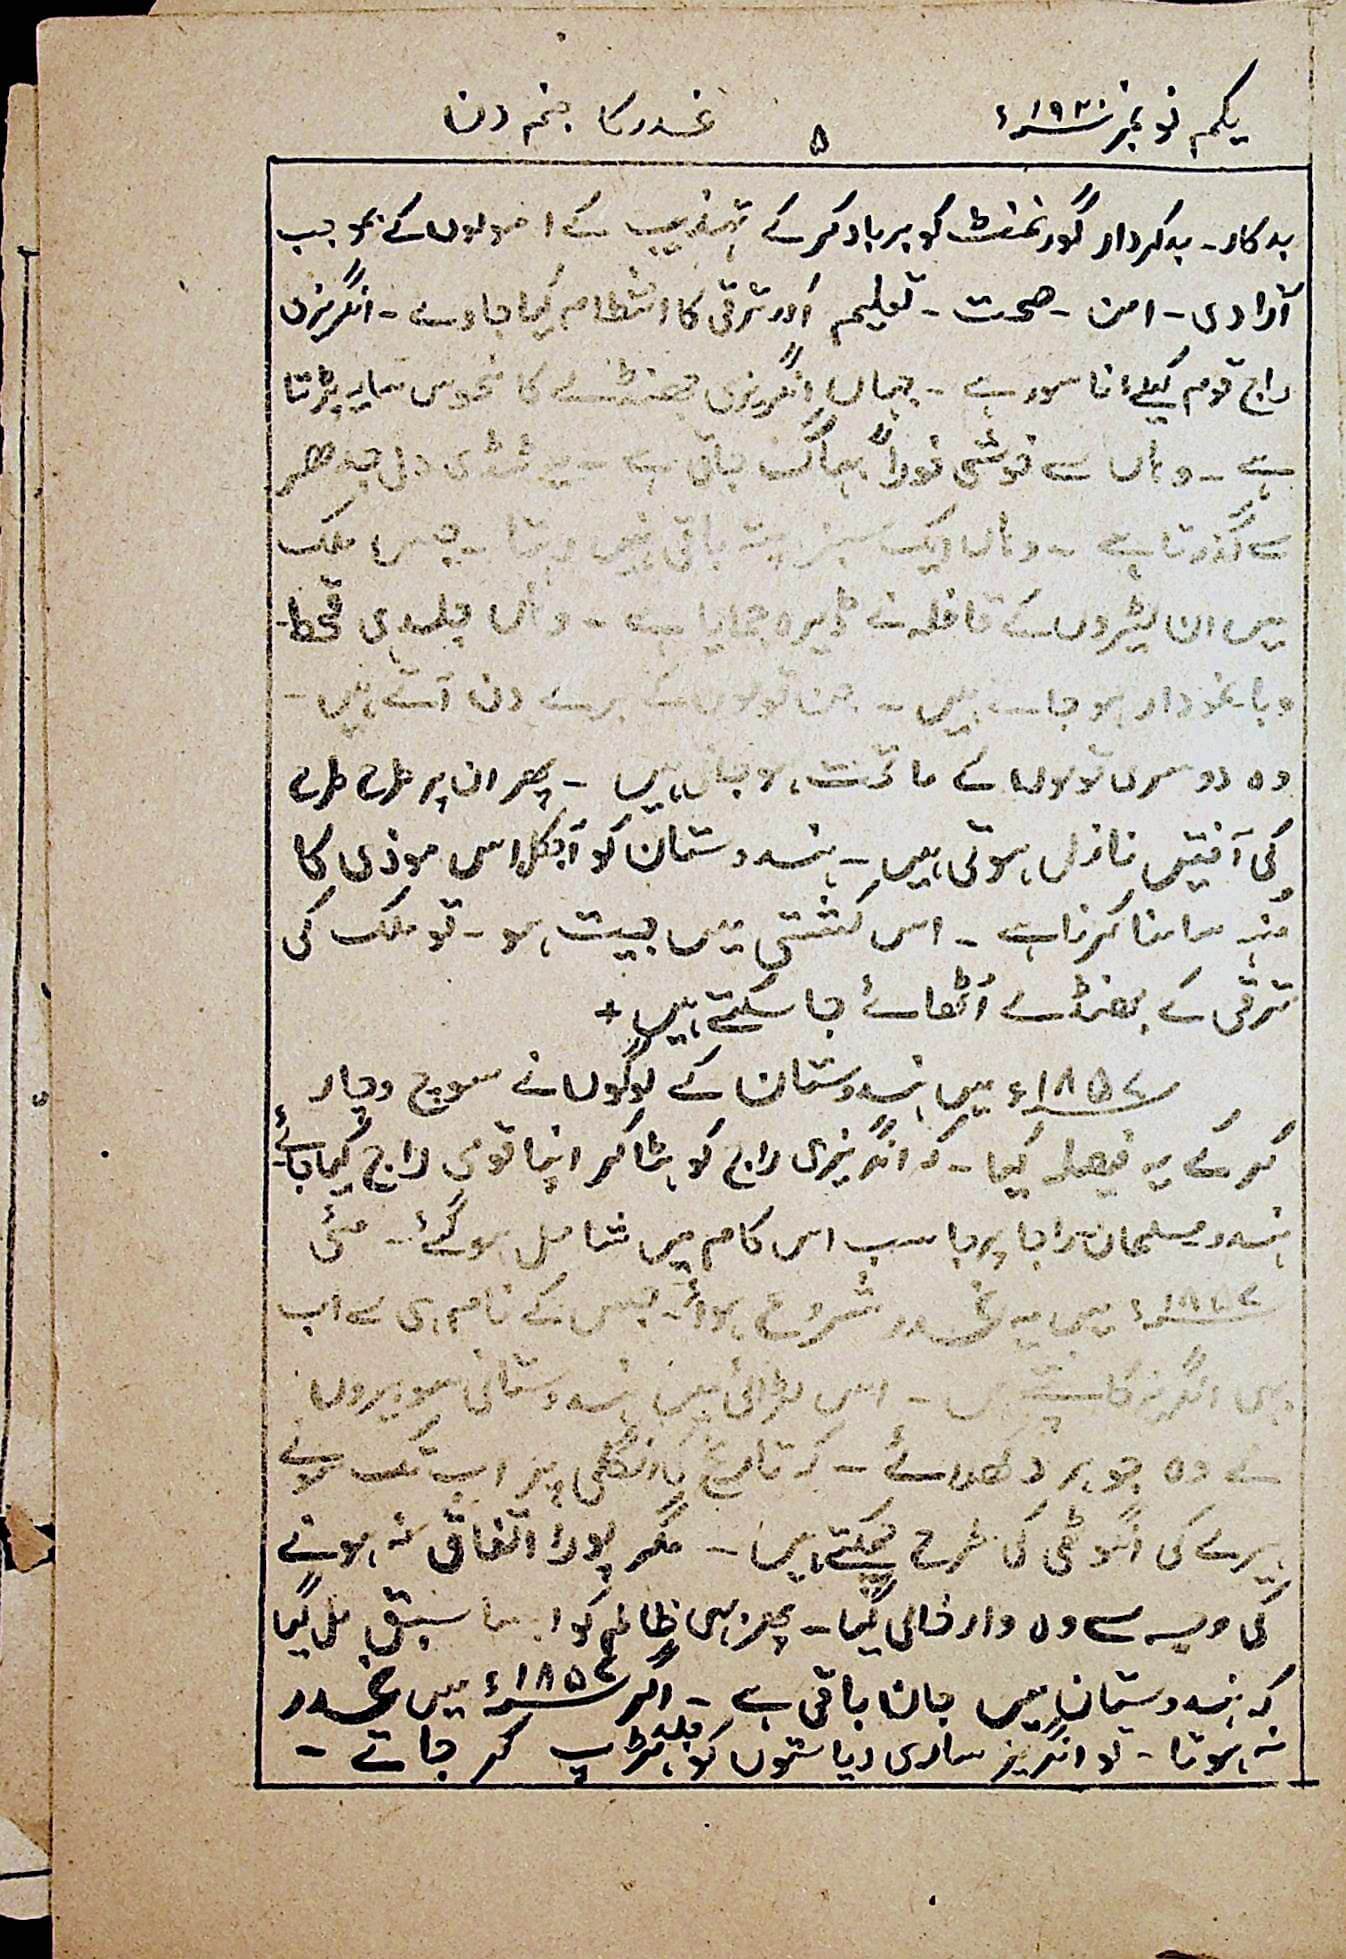 یکم نومبر ۱۹۲۰ء ۵ غدر کا جنم دن
بدکار ۔ بدکردار گورنمنٹ کو برباد کرکے تہذیب کے اصولوں کے بموجب
آزادی ۔ امن ۔ صحت ۔ تعلیم اور ترقی کا انتظام کیا جاوے ۔ انگریزی
راج قوم کیلئے ناسور ہے ۔ جہاں انگریزی جھنڈے کا منحوس سایہ پڑتا
ہے ۔ وہاں سے خوشی فوراً بھاگ جاتی ہے ۔ یہ ٹڈی دل جدھر
سے گذرتا ہے ۔ وہاں ایک سبز پتہ باقی نہیں رہتا ۔ جس ملک
میں ان لٹیروں کے قافلہ نے ڈیرہ جمایا ہے ۔ وہاں جلدی قحط
وبا نمودار ہو جاتے ہیں ۔ جن قوموں کے برے دن آتے ہیں ۔
وہ دوسری قوموں کے ماتحت ہو جاتی ہیں ۔ پھر ان پر طرح طرح
کی آفتیں نازل ہوتی ہیں ۔ ہندوستان کو آجکل اسی موذی کا
مُنہ سامنا کرنا ہے ۔ اس کشتی میں جیت ہو ۔ تو ملک کی
ترقی کے جھنڈے اُٹھائے جا سکتے ہیں +
۱۸۵۷ء میں ہندوستان کے لوگوں نے سوچ وچار
کرکے یہ فیصلہ کیا ۔ کہ انگریزی راج کو ہٹا کر اپنا قومی راج کیا جائے
ہندو مسلمان راجا پرجا سب اس کام میں شامل ہوگئے ۔ مئی
۱۸۵۷ء میں یہ غدر شروع ہوا ۔ جس کے نام ہی سے اب
بھی انگریز کانپتے ہیں ۔ اس لڑائی میں ہندوستانی سوبیروں
نے وہ جوہر دکھلائے ۔ کہ تاریخ کی انگلی پر اب تک سونے
ہیرے کی انگوٹھی کی طرح چمکتے ہیں ۔ مگر پورا اتفاق نہ ہونے
کی وجہ سے وہ وار خالی گیا ۔ پھر بھی ظالم کو ایسا سبق مل گیا
کہ ہندوستان میں جان باقی ہے ۔ اگر ۱۸۵۷ء میں غدر
نہ ہوتا ۔ تو انگریز ساری ریاستوں کو جلد ہڑپ کر جاتے ۔